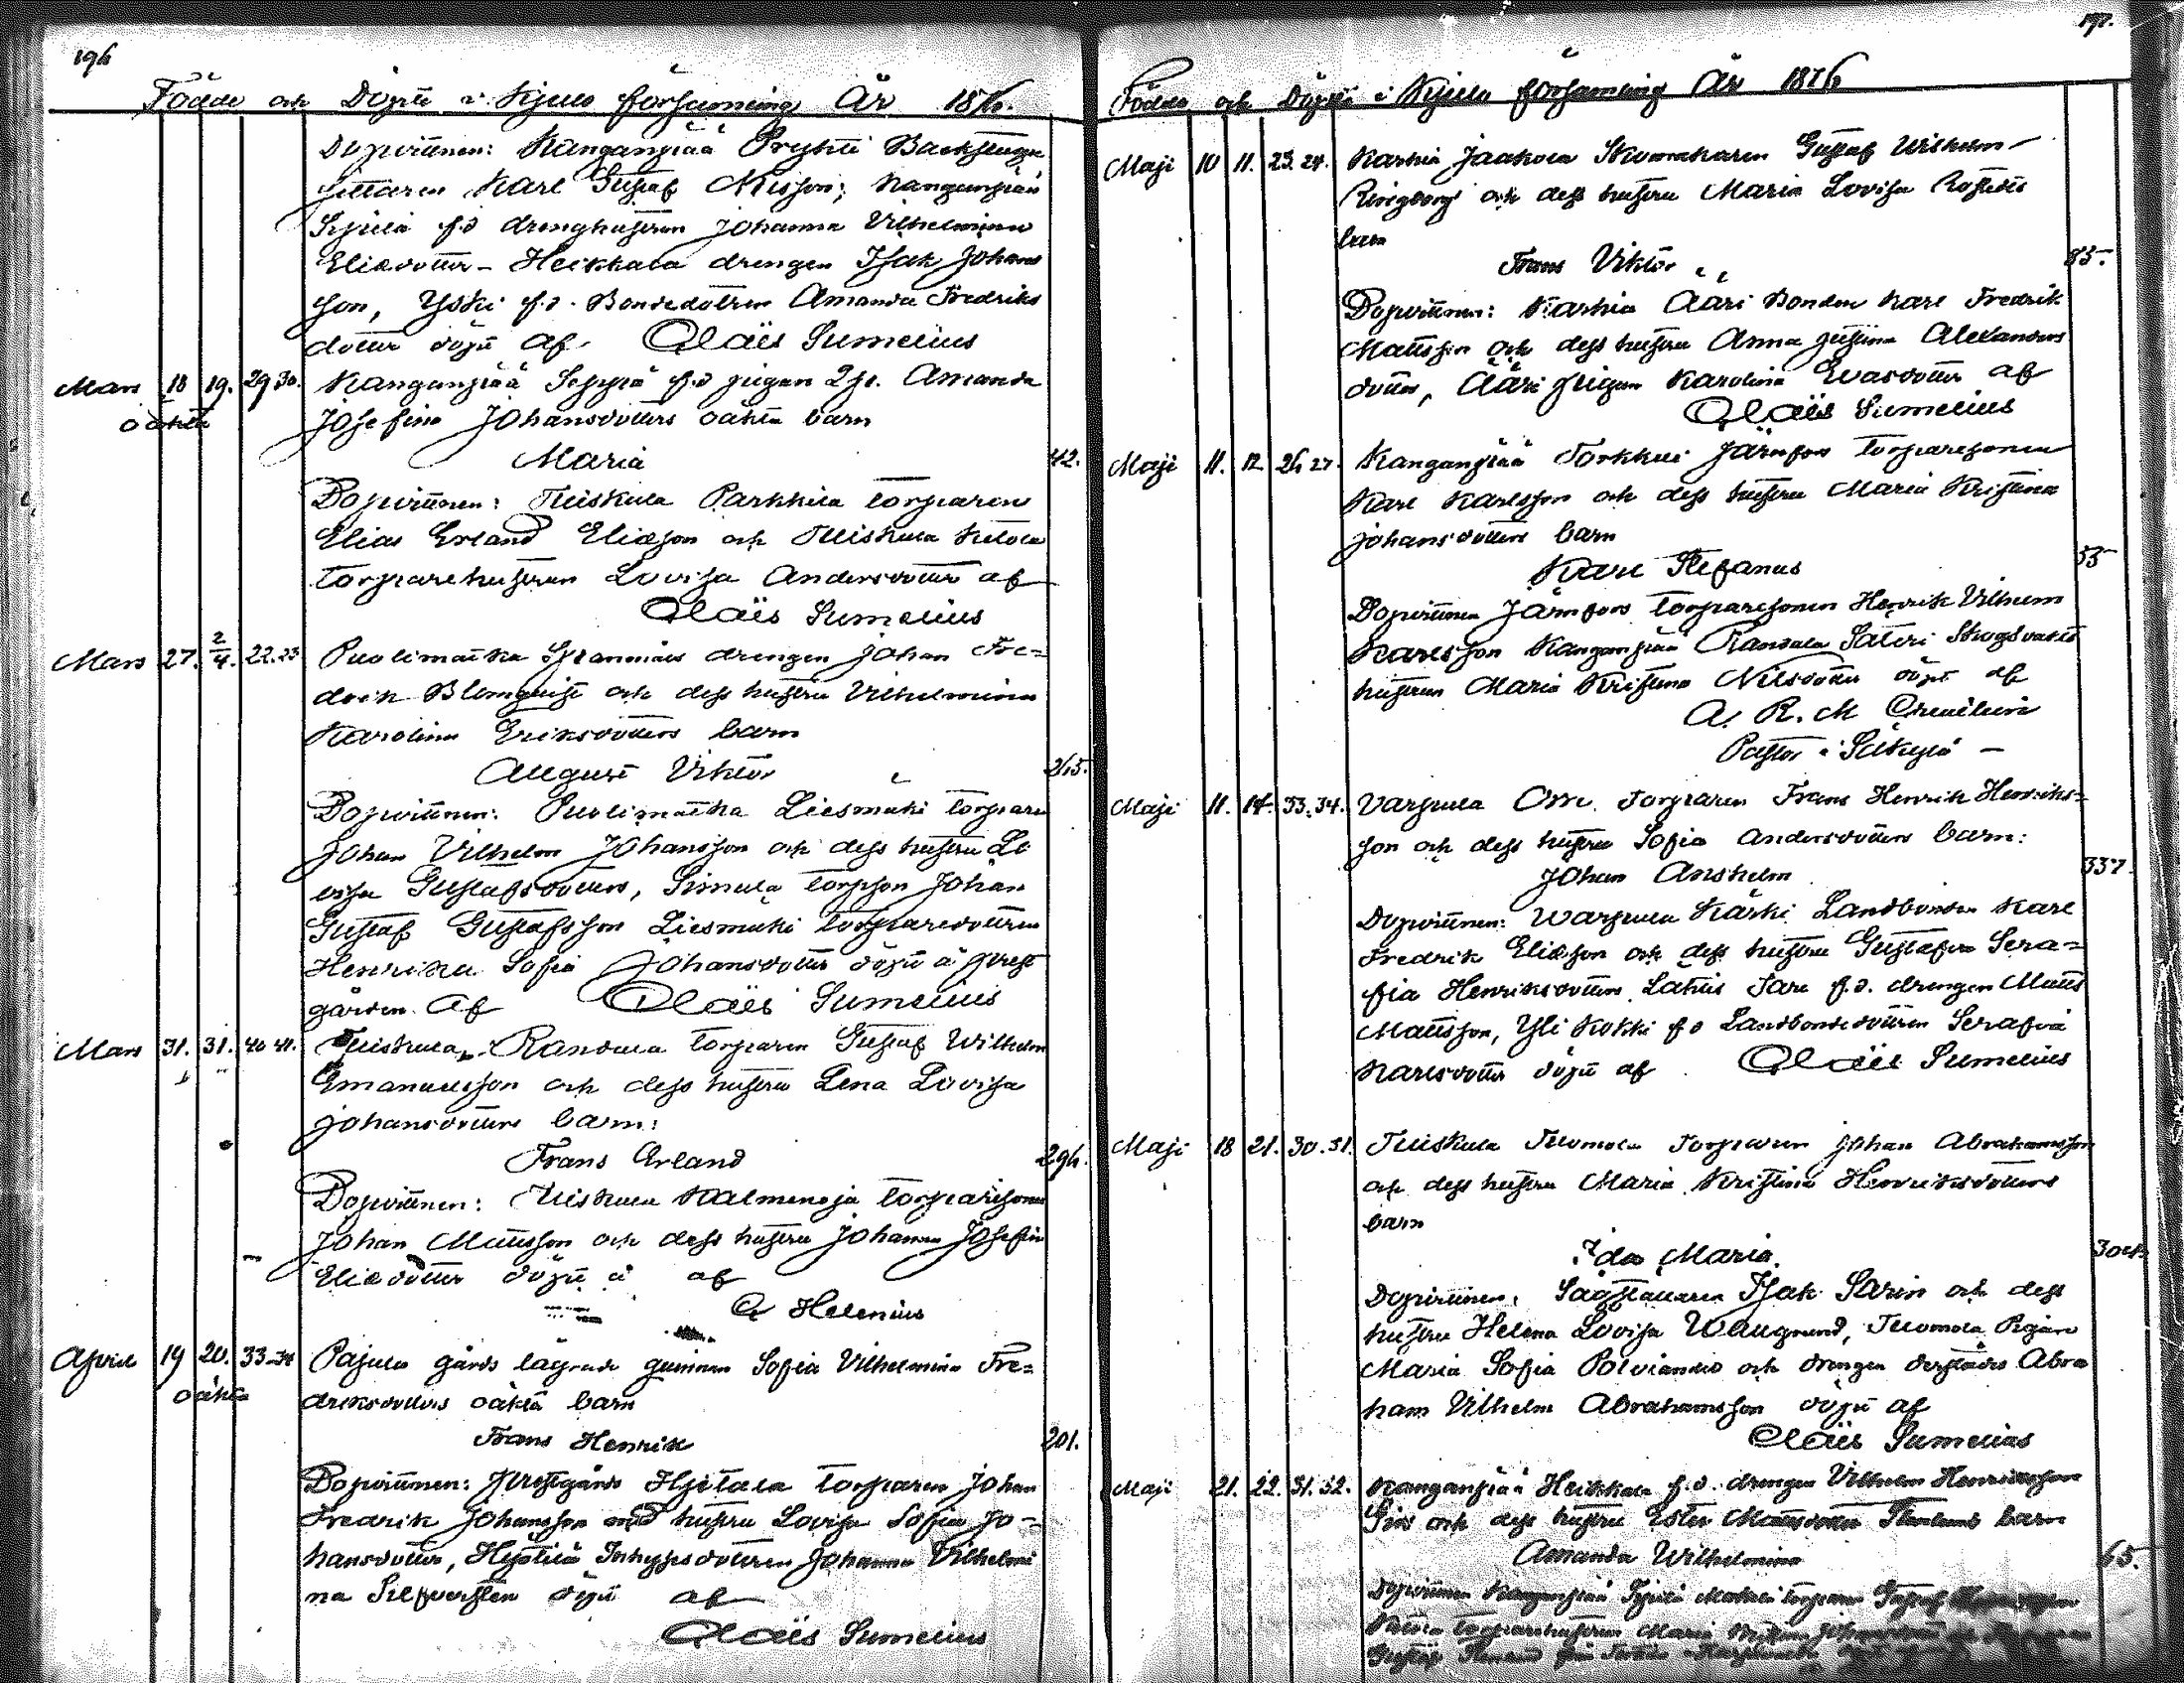 196
Födde och Döpte i Kjulo församling År 1876.
Dopvittnen: Kanganpää Prykti Backstugu
sittaren Karl Gustaf Nilsson; Kanganpää
Seppälä f.d drenghustrun Johanna Vilhelmina
Eliædotter - Heikkala drengen Isak Johans
son, Yski f.d. Bondedotren Amanda Fredriks
dotter döpt af Claës Sumelius
Mars 18 19. 29 30. Kanganpää Seppä f.d pigan Amanda
oäkta Josefina Johansdotters oäkta barn
Maria 42.
Dopvittnen: Tuiskula Parkkila torparen
Elias Erland Eliæson och Tuiskula Ketola
torparehustrun Lovisa Andersdotter af
Claës Sumelius
Mars 27. 2/4. 22.23 Puolimatka drengen Johan Fre=
drik Blomquist och dess hustru Vilhelmina
Karolina Eriksdotters barn
August Viktor 265.
Dopvittnen: Puolimatka Liesmäki torparen
Johan Vilhelm Johansson och dess hustru Lo
visa Gustafsdotter, Simula torpson Johan
Gustaf Gustafsson Liesmäki torparedottren
Henrika Sofia Johansdotter döpt å prest
gården af Claës Sumelius
Mars 31. 31. 40 41. Tuiskula Randula torparen Gustaf Wilhelm
Emanuelsson och dess hustru Lena Lovisa
Johansdotters barn:
Frans Erland 296.
Dopvittnen: Tuiskula Kalmenoja torparesonen
Johan Mattsson och dess hustru Johanna Josefina
Eliædotter döpt af
Helenius
April 19 20. 33-34 Pajula gårds lägrade qvinnan Sofia Vilhelmina Fre=
oäkta driksdotters oäkta barn
Frans Henrik 201.
Dopvittnen: Prestgårds Hjetala torparen Johan
Fredrik Johansson med hustru Lovisa Sofia Jo-
hansdotter, Inhysesdottren Johanna Vilhelmi
na Silfversten döpt af
Claës Sumelius
197.
Födde och Döpte i Kjulo församling År 1876
Maji 10 11. 23. 24. Karhia Jaakola Skomakaren Gustaf Wilhelm
Ringborg och dess hustru Maria Lovisa Rostedts
barn
Frans Viktor 85.
Dopvittnen: Karhia Ääri Bonden Karl Fredrik
Mattsson och dess hustru Anna Justina Alexanders
dotter, Ääri pigan Karolina Evasdotter af
Claës Sumelius
Maji 11. 12 26 27. Kanganpää Torkkui Järnfors torparesonen
Karl Karlsson och dess hustru Maria Kristina
Johansdotters barn
Karl Stefanus 55
Dopvittnen Järnfors torparesonen Henrik Vilhelm
Karlsson Kanganpää Randula Säteri Skogsvakts
hustrun Maria Kristina Nilsdotter döpt af
A. R. M
Pastor i Säkylä -
Maji 11. 14. 33. 34. Varpula Omi Torparen Frans Henrik Henriks=
son och dess hustru Sofia Andersdotters barn:
Johan Anshelm 337.
Dopvittnen: Warpula Kärki Landbonden Karl
Fredrik Eliæson och dess hustru Gustafva Sera=
fia Henriksdotter Lattis Tare f.d. drengen Matts
Mattsson, Yli Kokki f.d Landbondedottren Serafia
Karlsdotter döpt af Claës Sumelius
Maji 18 21. 30. 31. Tuiskula Tuomola Torparen Johan Abrahamsson
och dess hustru Maria Kristina Henriksdotters
barn
Ida Maria. 304.
Dopvittnen: Isak Sarin och dess
hustru Helena Lovisa Waugrund, Tuomola Pigan
Maria Sofia Polviander och drengen derstädes Abra
ham Vilhelm Abrahamsson döpt af
Claës Sumelius
Maji 21. 22. 31. 32. Kanganpää Heikkala f.d. drengen Vilhelm Henriksson
och dess hustru Ester Mattsdotter barn
Amanda Wilhelmina 65.
Dopvittnen Kanganpää torparen Gustaf
torparehustrun Maria
Gustaf